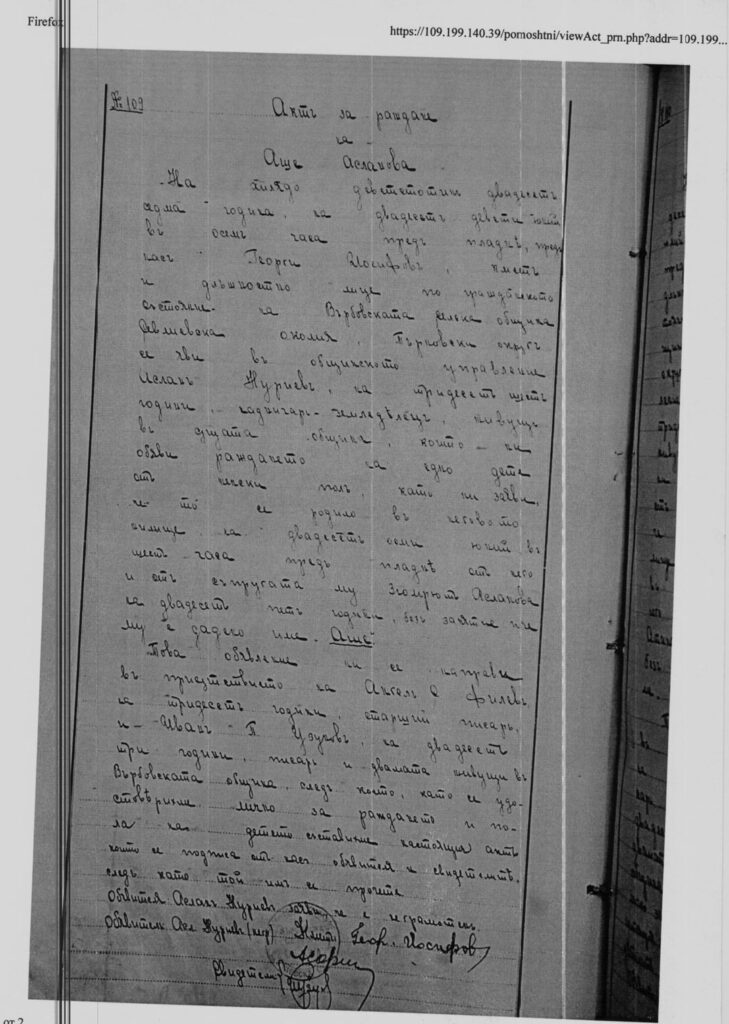 Firefox
https://109.199.140.39/pomoshtni/viewAct_prn.php?addr=109.199...
№ 109
Актъ за раждане
на
Аше Асланова
На хилядо деветстотинъ двадесетъ
седма година, на двадесетъ девети юний
въ осемъ часа предъ пладнѣ, предъ
насъ Георги Иосифовъ, кметъ
и длъжностно лице по гражданското
състояние на Върбовската селска община
Севлиевска околия, Търновски окрѫгъ
се яви въ общинското управление
Асланъ Нуриевъ, на тридесетъ шесть
години, земледѣлецъ, живущъ
въ сѫщата община, който ни
обяви раждането на едно дете
отъ женски полъ, като ни заяви,
че то се родило въ неговото
жилище на двадесетъ осми юний въ
шесть часа предъ пладнѣ отъ него
и отъ съпругата му Асланова
на двадесетъ петь години, безъ занятие и че
му е дадено име Аше.
Това обявление ни се направи
въ присѫтствието на Ангелъ Филевъ,
на тридесетъ години, старший писарь,
и Иванъ П. Узуновъ, на двадесетъ
три години, писарь и двамата живущи въ
Върбовската община, следъ което, като се удо-
стовѣрихме лично за раждането и по-
ла на детето съставихме настоящия актъ
който се подписа отъ насъ обявителя и свидетелитѣ,
следъ като той имъ се прочете.
Обявителя Асланъ Нуриевъ заяви че е неграмотенъ.
Обявителъ: Асл. Нуриевъ (негр) Кметъ: Геор. Иосифовъ
Свидетели:
от 2